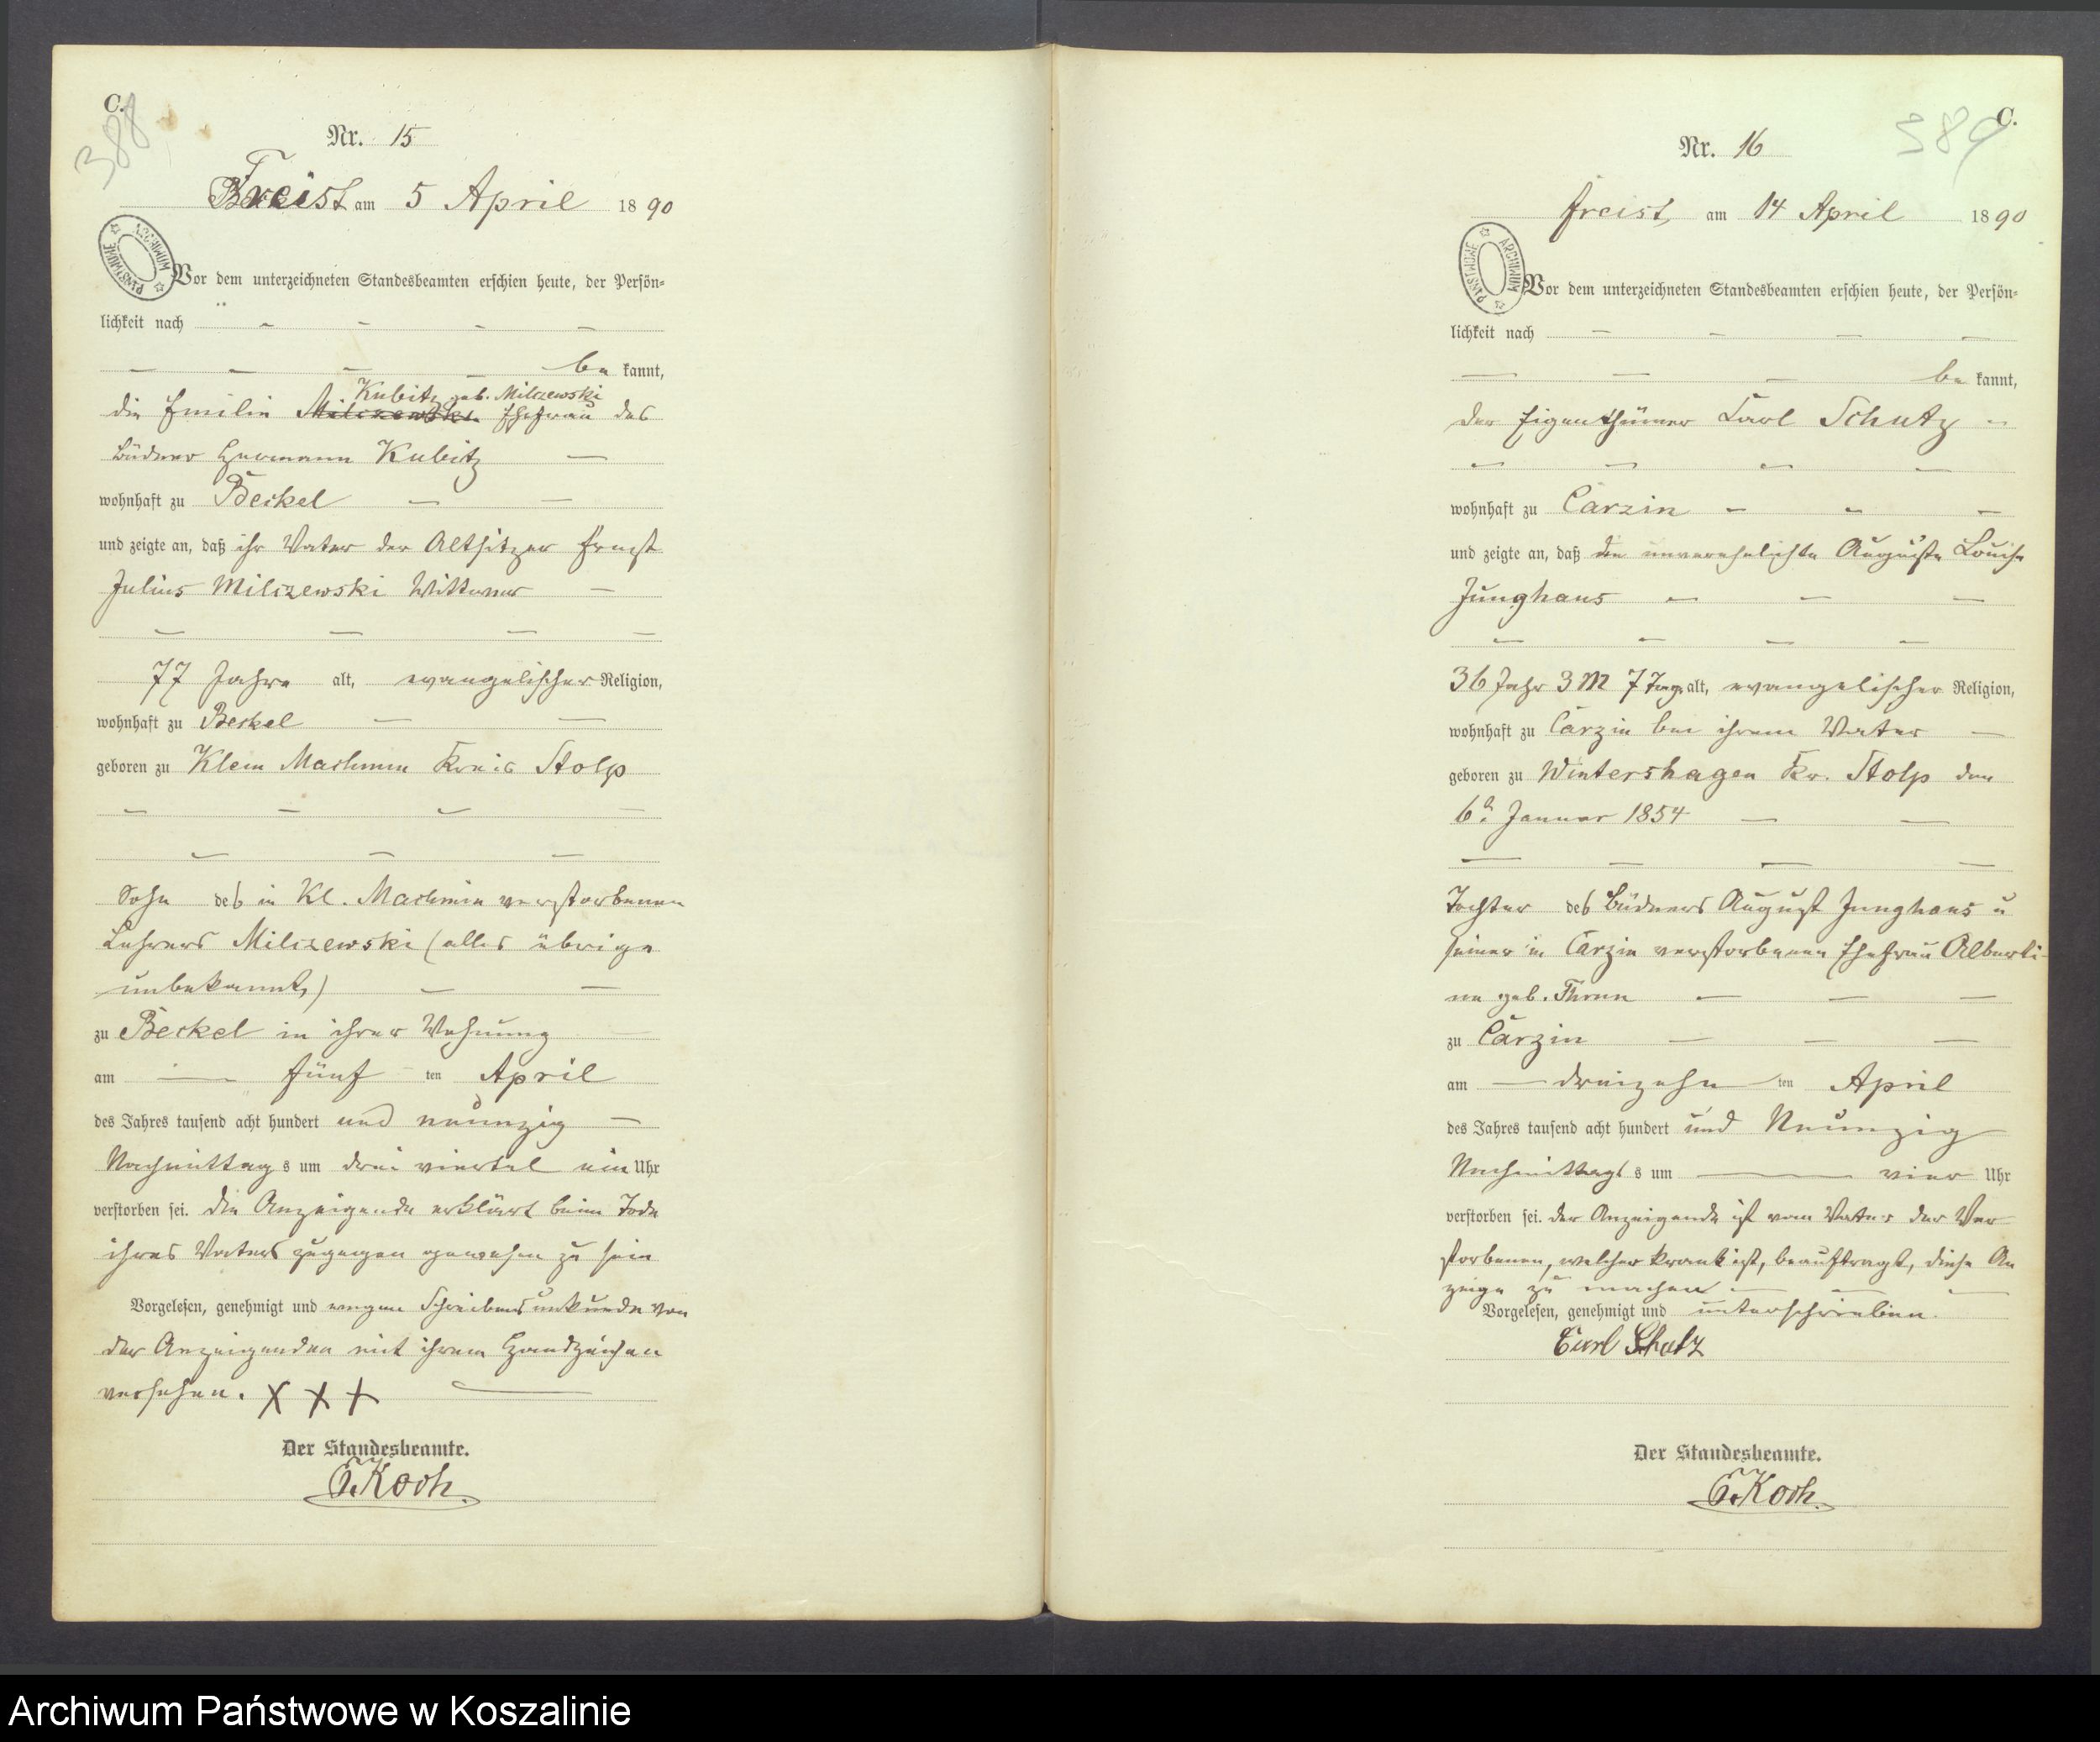 C.
388
Nr. 15
Freist am 5 April 1890
ARCHIWUM PAŃSTWOWE
Vor dem unterzeichneten Standesbeamten erschien heute, der Persön-
lichkeit nach
be kannt,
Kubitz geb. Milczewski
die Emilie Milczewski Ehefrau des
Büdner Hermann Kubitz
wohnhaft zu Beckel
und zeigte an, daß ihr Vater der Altsitzer Ernst
Julius Milczewski Wittwer
77 Jahre alt, evangelischer Religion,
wohnhaft zu Beckel
geboren zu Klein Machmin Kreis Stolp
Sohn des in Kl. Machmin verstorbenen
Lehrers Milczewski (alles übrige
unbekannt,)
zu Beckel in ihrer Wohnung
am fünf ten April
des Jahres tausend acht hundert und neunzig
Nachmittag s um drei viertel ein Uhr
verstorben sei. Die Anzeigende erklärt beim Tode
ihres Vaters zugegen gewesen zu sein
Vorgelesen, genehmigt und wegen Schreibensunkunde von
der Anzeigenden mit ihrem Handzeichen
versehen. X X X
Der Standesbeamte.
C. Koch.
C.
389
Nr. 16
Freist, am 14 April 1890
ARCHIWUM PAŃSTWOWE
Vor dem unterzeichneten Standesbeamten erschien heute, der Persön-
lichkeit nach
be kannt,
der Eigenthümer Carl Schutz
wohnhaft zu Carzin
und zeigte an, daß die unverehelichte Auguste Louise
Junghans
36 Jahr 3 M 7 Tag alt, evangelischer Religion,
wohnhaft zu Carzin bei ihrem Vater
geboren zu Wintershagen Kr. Stolp den
6t. Januar 1854
Tochter des Büdners August Junghans u
seiner in Carzin verstorbenen Ehefrau Alberti-
ne geb. Thrun
zu Carzin
am dreizehn ten April
des Jahres tausend acht hundert und Neunzig
Nachmittags s um vier Uhr
verstorben sei. Der Anzeigende ist vom Vater der Ver
storbenen, welcher krank ist, beauftragt, diese An
zeige zu machen
Vorgelesen, genehmigt und unterschrieben.
Carl Schutz
Der Standesbeamte.
C. Koch.
Archiwum Państwowe w Koszalinie